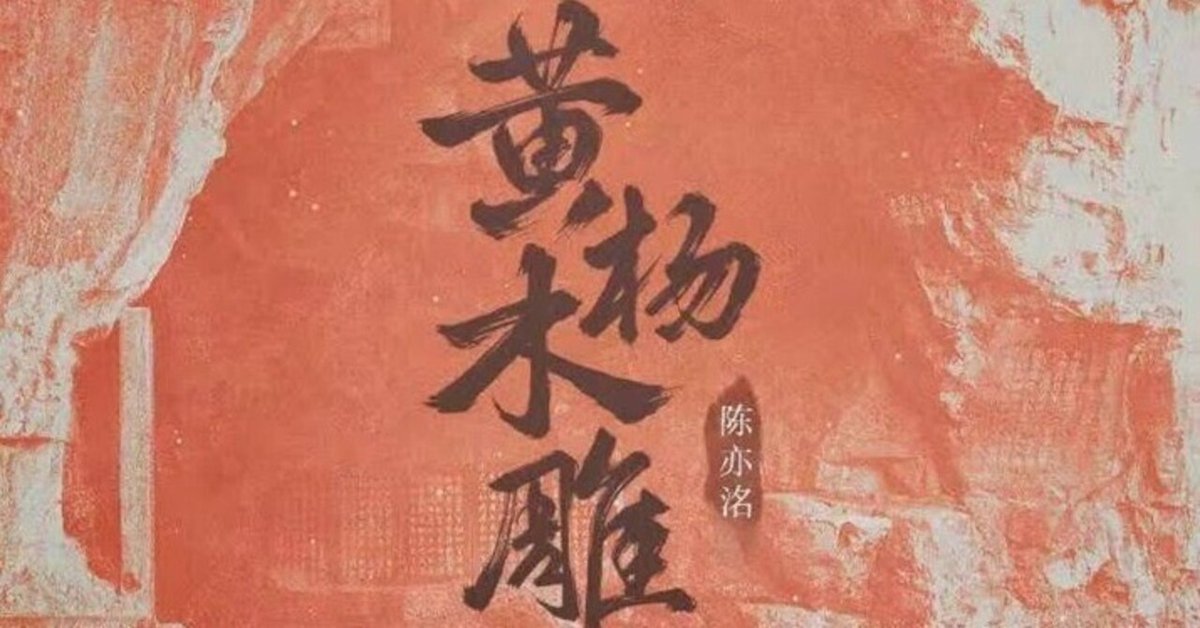 黄杨木雕
陈亦洺